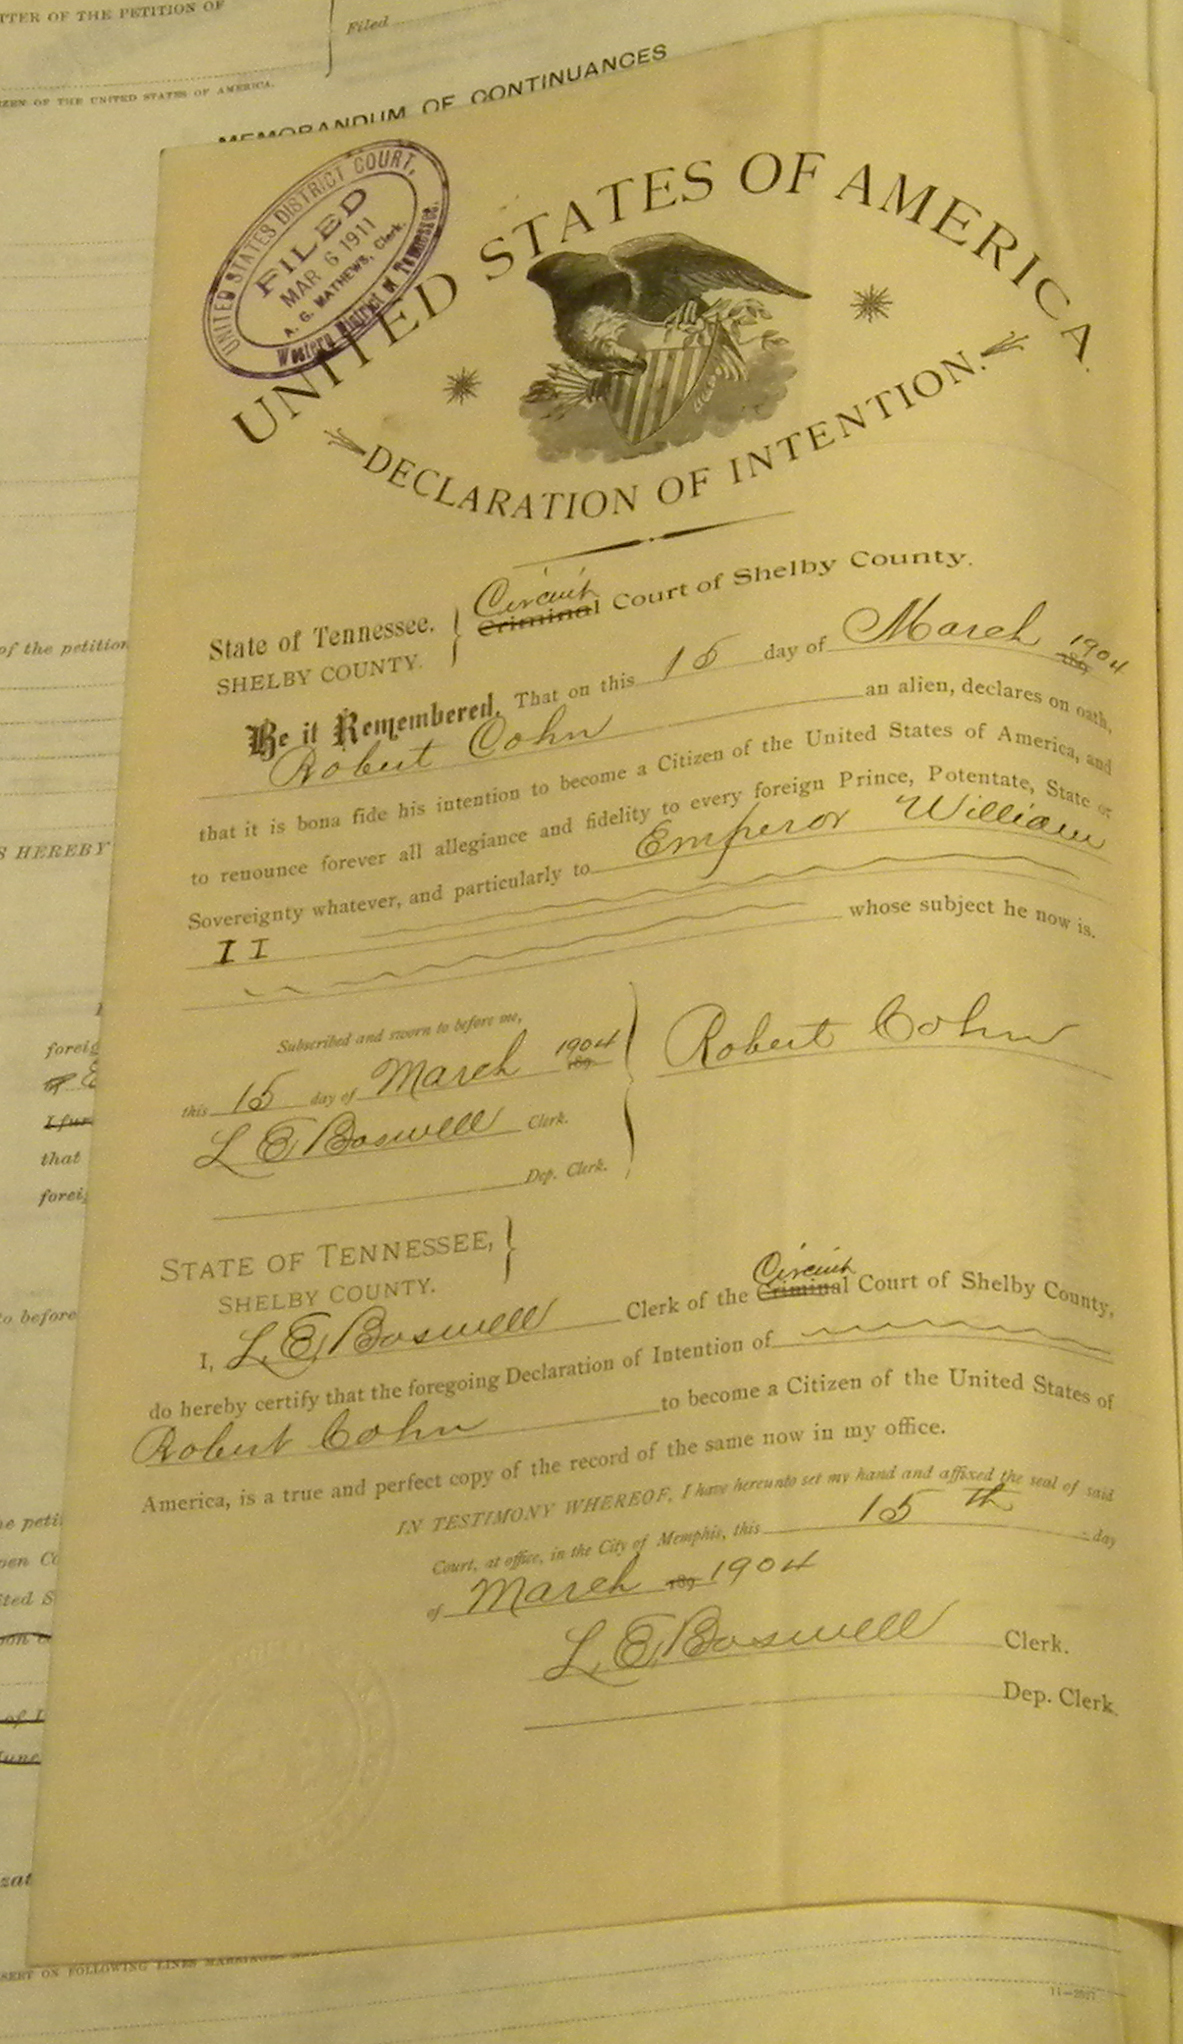 TTER OF THE PETITION OF
Filed
ZEN OF THE UNITED STATES OF AMERICA.
MEMORANDUM OF CONTINUANCES
UNITED STATES DISTRICT COURT,
FILED
MAR 6 1911
A. G. MATHEWS, Clerk.
Western District of Tennessee.
UNITED STATES OF AMERICA.
DECLARATION OF INTENTION.
Circuit
State of Tennessee. Criminal Court of Shelby County.
SHELBY COUNTY.
Be it Remembered, That on this 15 day of March 1904 189
Robert Cohn an alien, declares on oath,
that it is bona fide his intention to become a Citizen of the United States of America, and
to renounce forever all allegiance and fidelity to every foreign Prince, Potentate, State or
Sovereignty whatever, and particularly to Emperor William
II
whose subject he now is.
Subscribed and sworn to before me,
this 15 day of March 1904 189
Robert Cohn
L E Boswell Clerk.
Dep. Clerk.
STATE OF TENNESSEE,
SHELBY COUNTY.
Circuit
I, L. E. Boswell Clerk of the Criminal Court of Shelby County,
do hereby certify that the foregoing Declaration of Intention of
Robert Cohn to become a Citizen of the United States of
America, is a true and perfect copy of the record of the same now in my office.
IN TESTIMONY WHEREOF, I have hereunto set my hand and affixed the seal of said
Court, at office, in the City of Memphis, this 15 th day
of March 189 1904
L. E. Boswell Clerk.
Dep. Clerk.
of the petition
S HEREBY
foreig
I fur
that
foreig
to before
he peti
pen Co
ited S
of I
June
zat
SERT ON FOLLOWING LINES